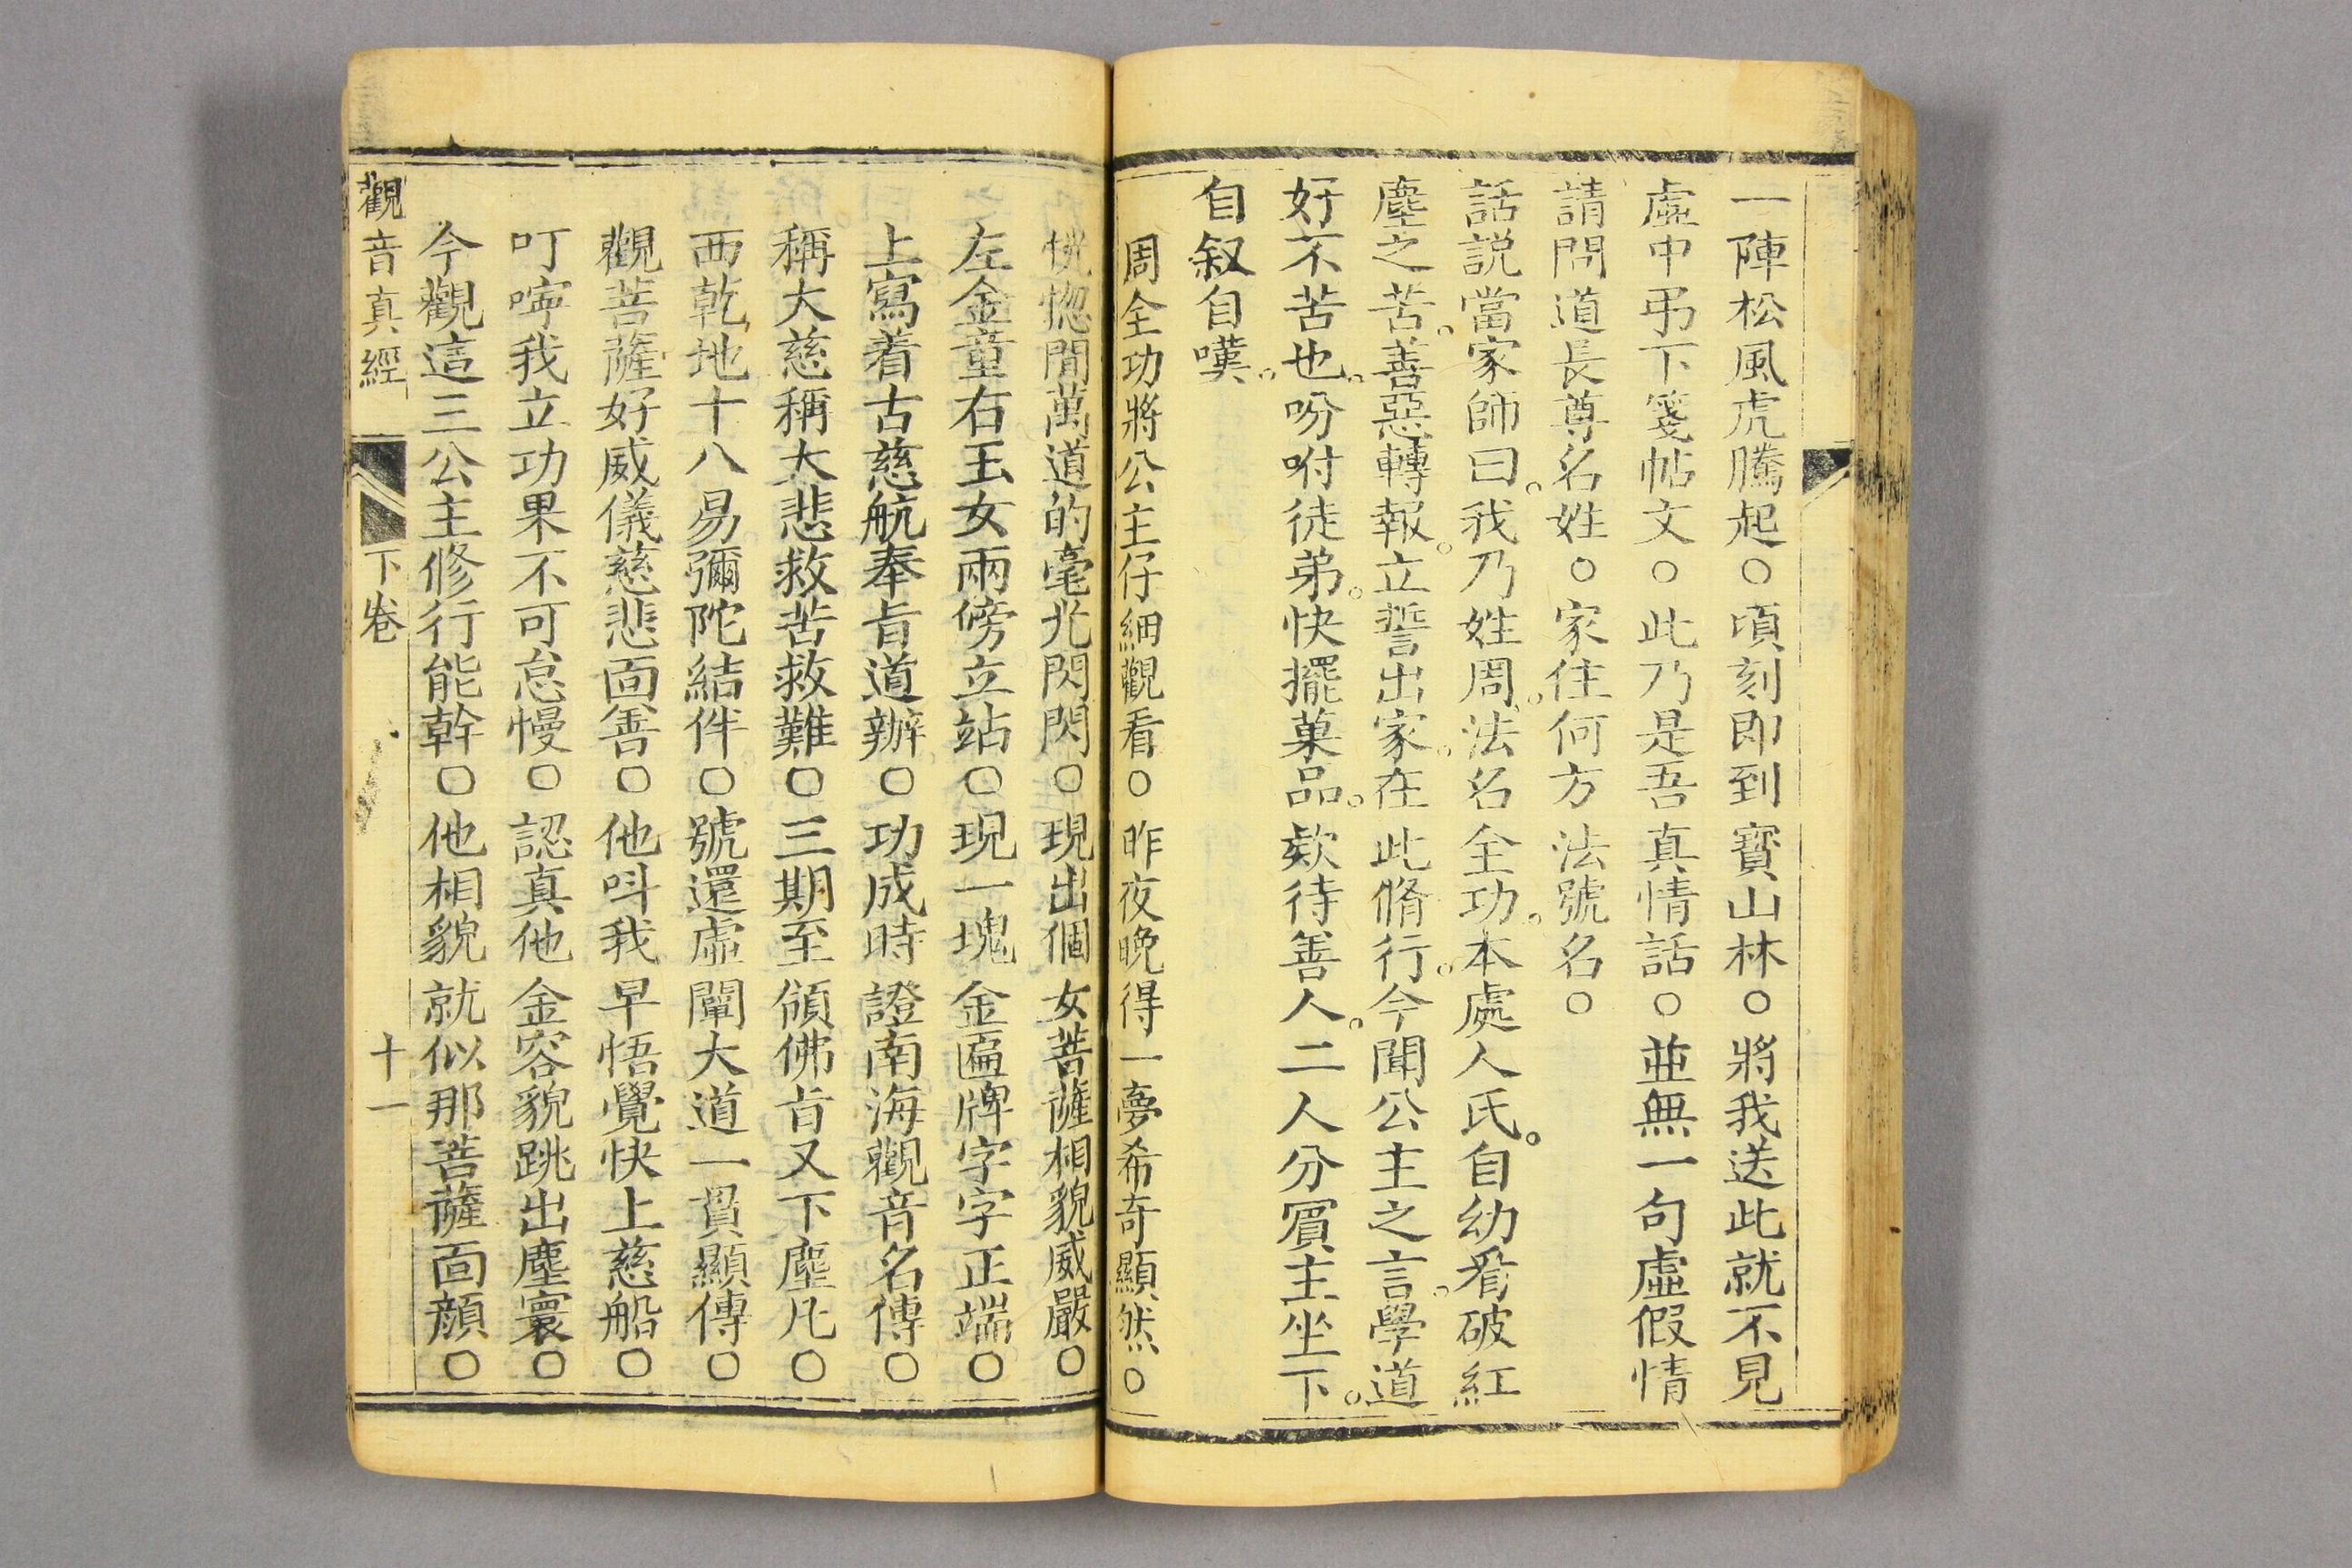 一陣松風虎騰起○頃刻即到寳山林○將我送此就不見
虛中弔下箋帖文○此乃是吾真情話○並無一句虛假情
請問道長尊名姓○家住何方法號名○
話説當家師曰。我乃姓周。法名全功。本處人氏。自幼看破紅
塵之苦。善惡轉報。立誓出家。在此脩行。今聞公主之言。學道
好不苦也。吩咐徒弟。快擺菓品。欵待善人。二人分賔主坐下。
自叙自嘆。
周全功將公主仔細觀看○昨夜晚得一夢希奇顯然○
恍惚間萬道的毫光閃閃○現出個女菩薩相貌威嚴○
左金童右玉女兩傍立站○現一塊金匾牌字字正端○
上寫着古慈航奉旨道辦○功成時證南海觀音名傳○
稱大慈稱大悲救苦救難○三期至領佛旨又下塵凡○
西乾地十八易彌陀結伴○號還虛闡大道一貫顯傳○
觀菩薩好威儀慈悲面善○他呌我早悟覺快上慈船○
叮嚀我立功果不可怠慢○認真他金容貌跳出塵寰○
今觀這三公主修行能幹○他相貌就似那菩薩面顔○
觀音真經 下卷 十一